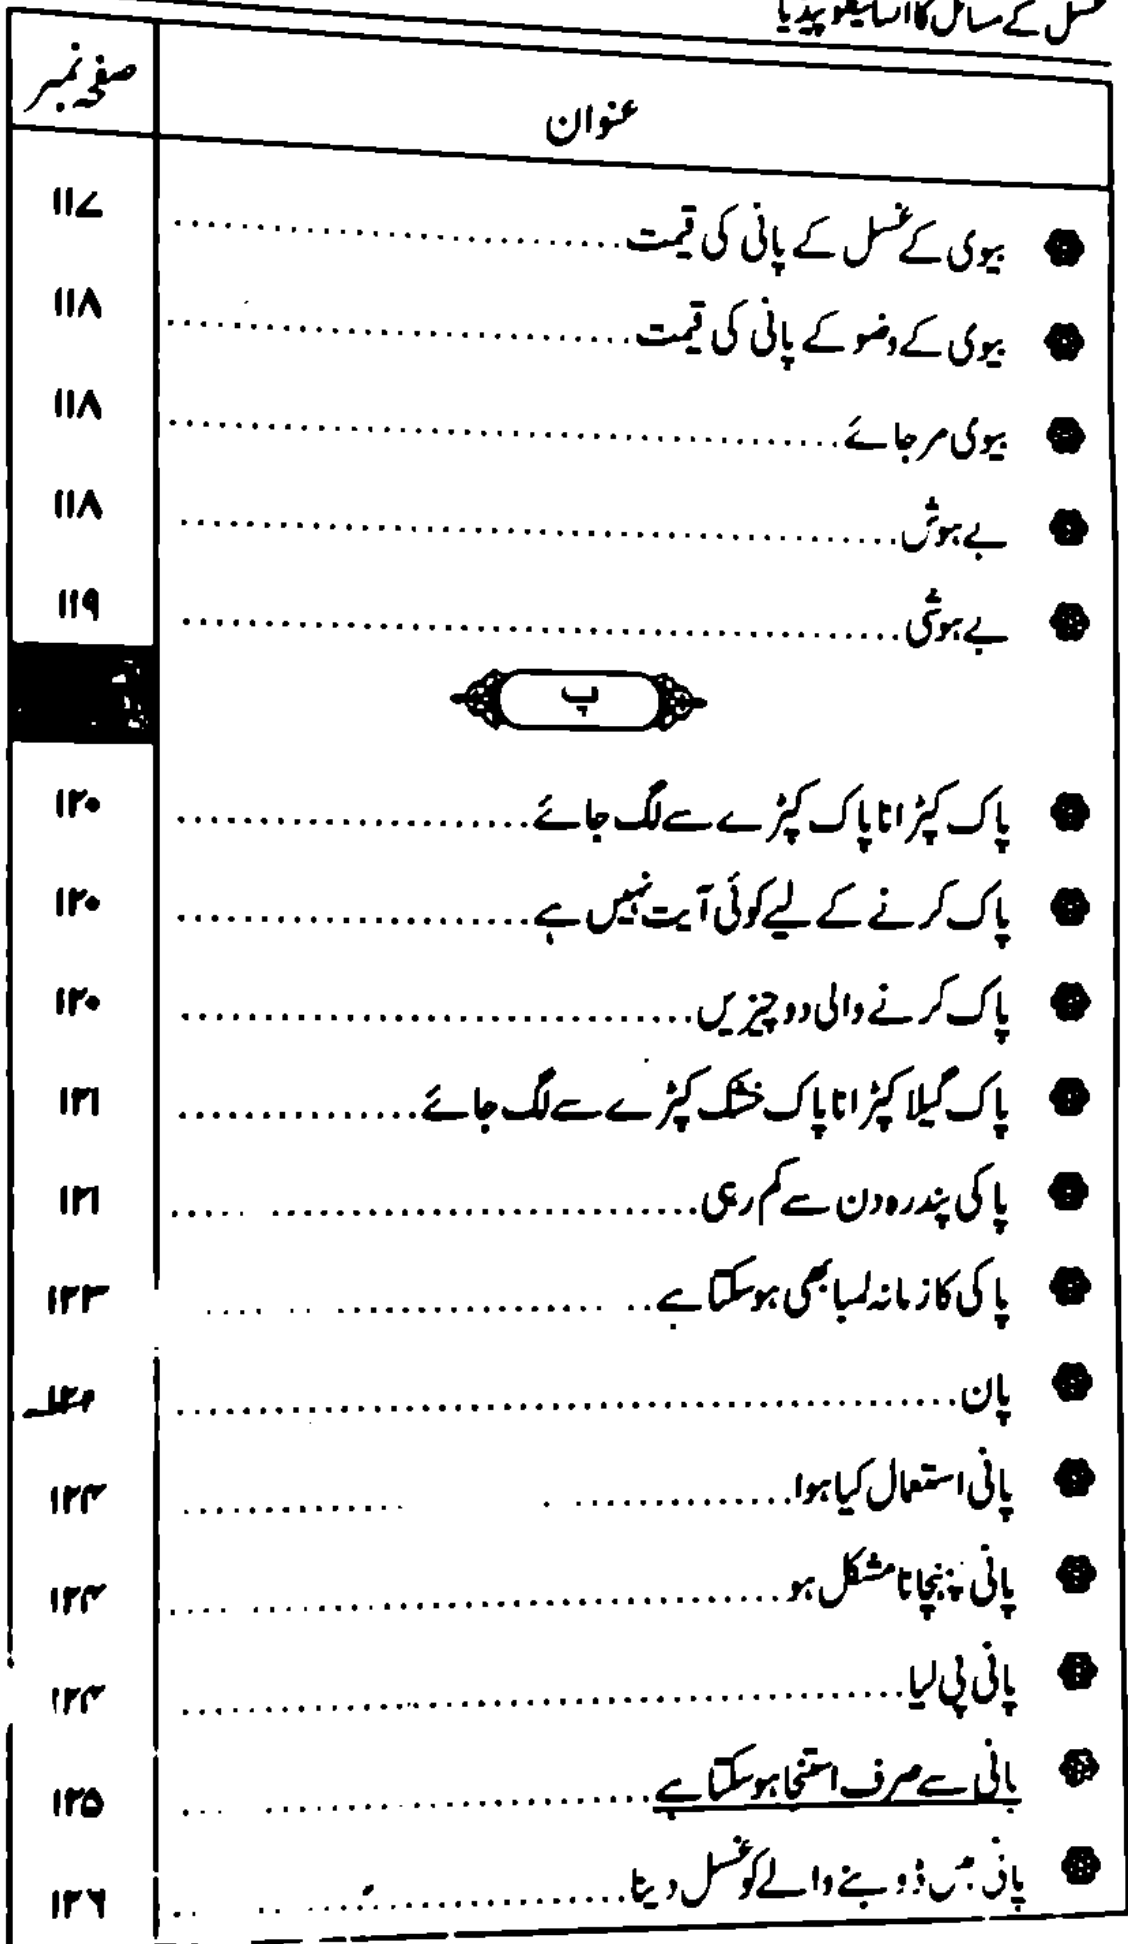 غسل کے مسائل کا انسائیکلوپیڈیا
عنوان صفحہ نمبر
بیوی کے غسل کے پانی کی قیمت ۱۱۷
بیوی کے وضو کے پانی کی قیمت ۱۱۸
بیوی مر جائے ۱۱۸
بے ہوش ۱۱۸
بے ہوشی ۱۱۹
پ
پاک کپڑا ناپاک کپڑے سے لگ جائے ۱۲۰
پاک کرنے کے لیے کوئی آیت نہیں ہے ۱۲۰
پاک کرنے والی دو چیزیں ۱۲۰
پاک گیلا کپڑا ناپاک خشک کپڑے سے لگ جائے ۱۲۱
پاکی پندرہ دن سے کم رہی ۱۲۱
پاکی کا زمانہ لمبا بھی ہو سکتا ہے ۱۲۳
پان
پانی استعمال کیا ہوا ۱۲۴
پانی پہنچانا مشکل ہو ۱۲۴
پانی پی لیا ۱۲۴
پانی سے صرف استنجا ہو سکتا ہے ۱۲۵
پانی میں ڈوبنے والے کو غسل دینا ۱۲۶